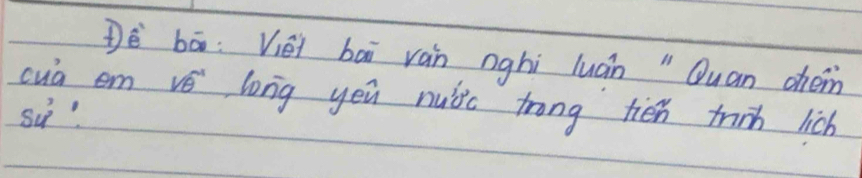 Đề bài: Viết bài văn nghị luận "Quan điểm
của em về lòng yêu nước trong tiến trình lịch
sử".